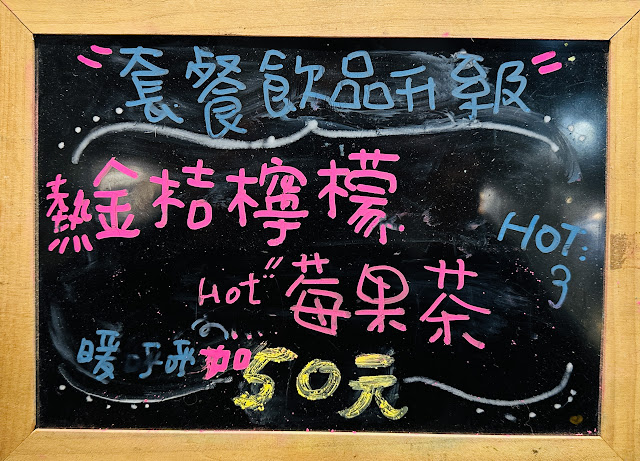 "套餐飲品升級"
熱金桔檸檬
HOT:3
Hot"莓果茶
暖呼呼の...
加50元